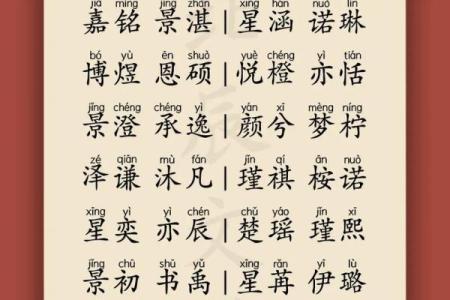 jiā míng jǐng zhàn xīng hán nuò lín
嘉铭 景湛 | 星涵 诺琳
bó yù ēn shuò yuè chéng yì tián
博煜 恩硕 | 悦橙 亦恬
jǐng chéng chéng yì yán xī mèng níng
景澄 承逸 | 颜兮 梦柠
zé qiān mù fán jǐn qí ān nuò
泽谦 沐凡 | 瑾祺 桉诺
xīng yì yì chén chǔ yáo jǐn xī
星奕 亦辰 | 楚瑶 瑾熙
jǐng chū shū yǔ xīng rǎn yī lù
景初 书禹 | 星苒 伊璐
辰文